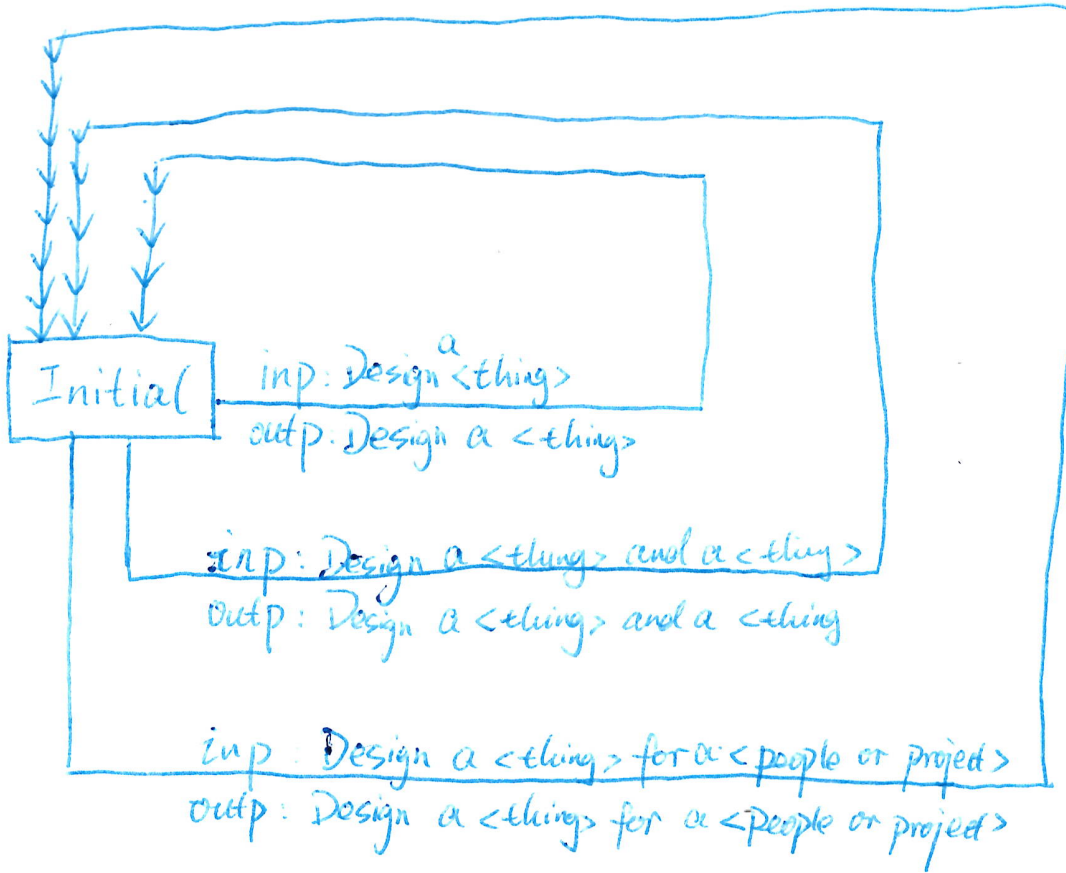 a
inp: Design <thing>
Initial
outp: Design a <thing>
inp: Design a <thing> and a <thing>
outp: Design a <thing> and a <thing
inp: Design a <thing> for a <people or project>
outp: Design a <thing> for a <people or project>